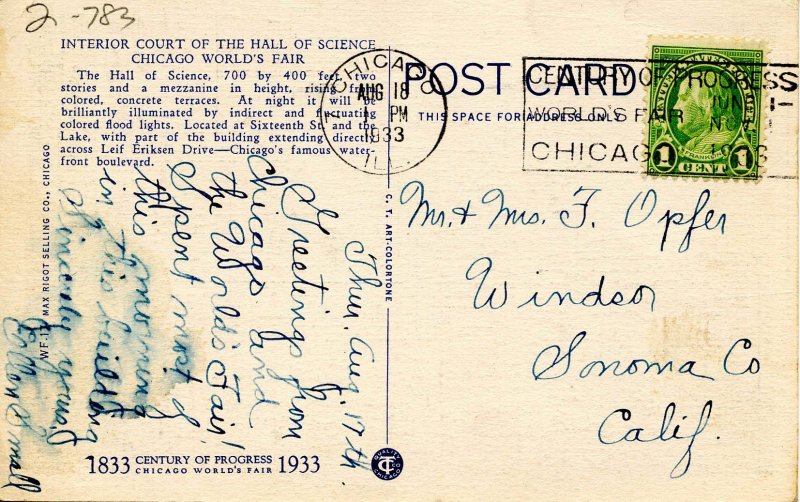 2-783
INTERIOR COURT OF THE HALL OF SCIENCE
CHICAGO WORLD'S FAIR
The Hall of Science, 700 by 400 feet, two
stories and a mezzanine in height, rising from
colored, concrete terraces. At night it will be
brilliantly illuminated by indirect and fluctuating
colored flood lights. Located at Sixteenth St. and the
Lake, with part of the building extending directly
across Leif Eriksen Drive—Chicago's famous water-
front boulevard.
WF-17 MAX RIGOT SELLING CO., CHICAGO
Thur. Aug. 17th.
Greetings from
Chicago and
the World's Fair!
Spent most of
this morning
in this building
Sincerely yours,
Small
1833 CENTURY OF PROGRESS 1933
CHICAGO WORLD'S FAIR
C. T. ART-COLORTONE
QUALITY
CT
CHICAGO
POST CARD
THIS SPACE FOR ADDRESS ONLY
CHICAGO
AUG 18
1 PM
1933
ILL.
CENTURY OF PROGRESS
WORLD'S FAIR
CHICAGO
JUN 1-
NOV 1
1933
UNITED STATES POSTAGE
FRANKLIN
1 CENT 1
Mr. & Mrs. F. Opfer
Windsor
Sonoma Co
Calif.